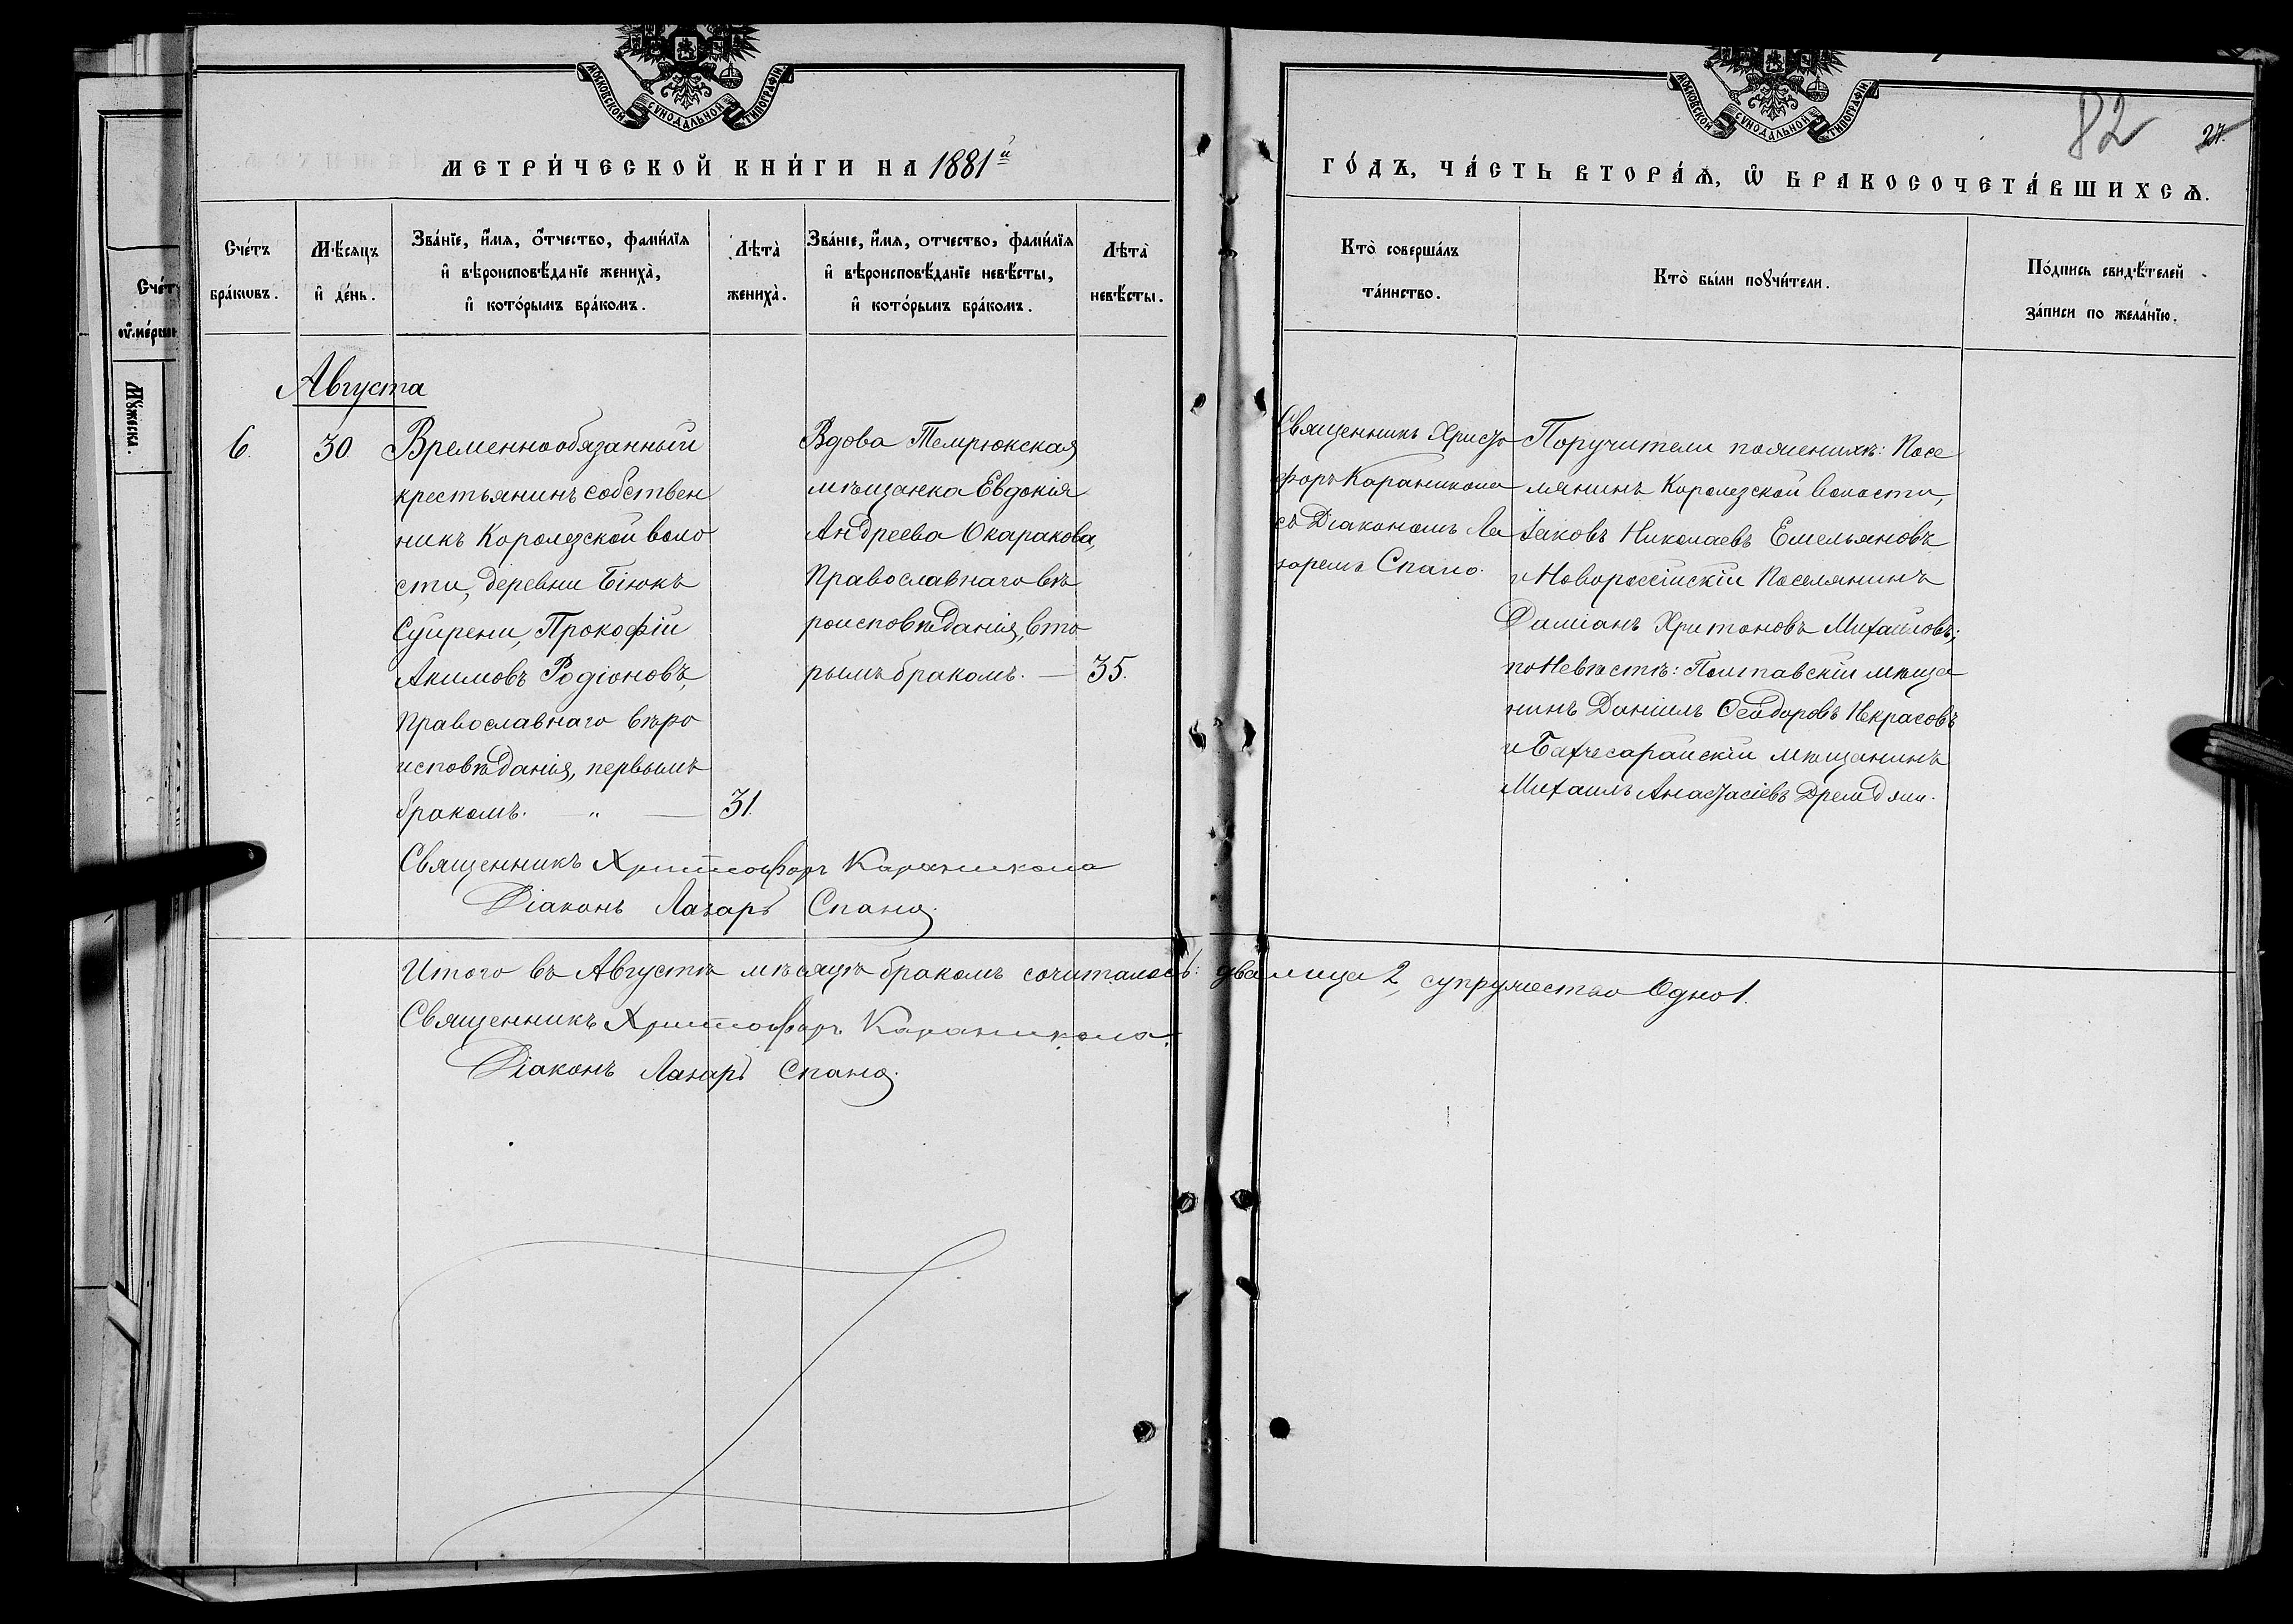 МОСКОВСКОЙ СУНОДАЛЬНОЙ ТИПОГРАФІИ
МЕТРИ́ЧЕСКОЙ КНИ́ГИ НА 1881й
Сче́тъ бра́кѡвъ.
Мѣ́сяцъ и҆ де́нь.
Зва́нїе, и҆́мя, ѻ҆́тчество, фами́лїя
и҆ вѣроисповѣ́данїе жениха̀,
и҆ кото́рымъ бра́комъ.
Лѣта̀ жениха̀.
Зва́нїе, и҆́мя, отчество, фами́лїя
и҆ вѣроисповѣ́данїе невѣ́сты,
и҆ кото́рымъ бра́комъ.
Лѣта̀ невѣ́сты.
Августа
6. 30.
Временнообязанный
крестьянинъ собствен
никъ Каролезской воло
сти, деревни Біюкъ
Суйрени, Прокофій
Акимовъ Родіоновъ,
Православнаго вѣро
исповѣданія, первымъ
бракомъ. — „ — 31.
Вдова Темрюкская
мѣщанка Евдокія
Андреева Окаракова,
Православнаго вѣ
роисповѣданія, вто
рымъ бракомъ. — 35.
Священникъ Христофоръ Караникола
Діаконъ Лазарь Спано.
Итого въ Августѣ мѣсяцѣ бракомъ сочиталось: два лица 2, супружество Одно 1.
Священникъ Христофоръ Караникола.
Діаконъ Лазарь Спано.
Сче́т
ᲂу҆ме́рши
Мꙋ́жеска.
МОСКОВСКОЙ СУНОДАЛЬНОЙ ТИПОГРАФІИ
82 27.
ГО́ДЪ, ЧА́СТЬ ВТОРА́Ѧ, Ѽ БРАКОСОЧЕТА́ВШИХСѦ.
Кто̀ соверша́лъ
та́инство.
Кто̀ бы́ли поꙋчи́тели.
По́дпись свидѣ́телей
за́писи по жела́нїю.
Священникъ Христо
форъ Караникола
съ Діакономъ Ла
заремъ Спано.
Поручители по женихѣ: Посе
лянинъ Каролезской волости,
Іаковъ Николаевъ Емельяновъ
и Новороссійскій Поселянинъ
Даміанъ Харитоновъ Михайловъ;
по Невѣстѣ: Полтавскій мѣща
нинъ Даніилъ Ѳеодоровъ Некрасовъ
и Бахчесарайскій мѣщанинъ
Михаилъ Анастасіевъ